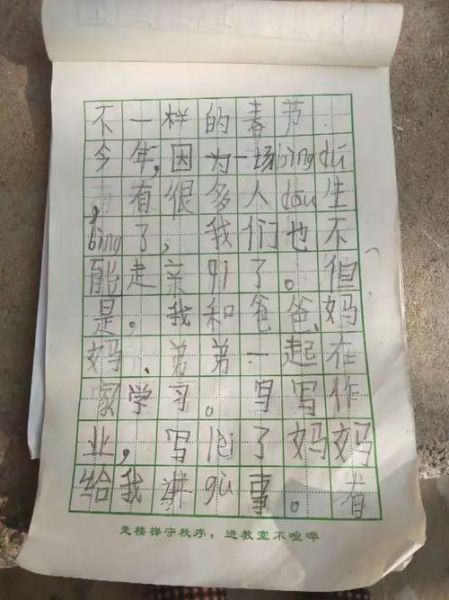 不一样的春节
今年,因为一场bìngdú
,有很多人dōu生
bìng了,我们也不
能走亲qī了。但
是。我和爸爸、妈
妈、弟弟一起在
家学习。写写作
业,写lèi了妈妈
给我讲gù事。有
走楼梯守秩序,进教室不喧哗